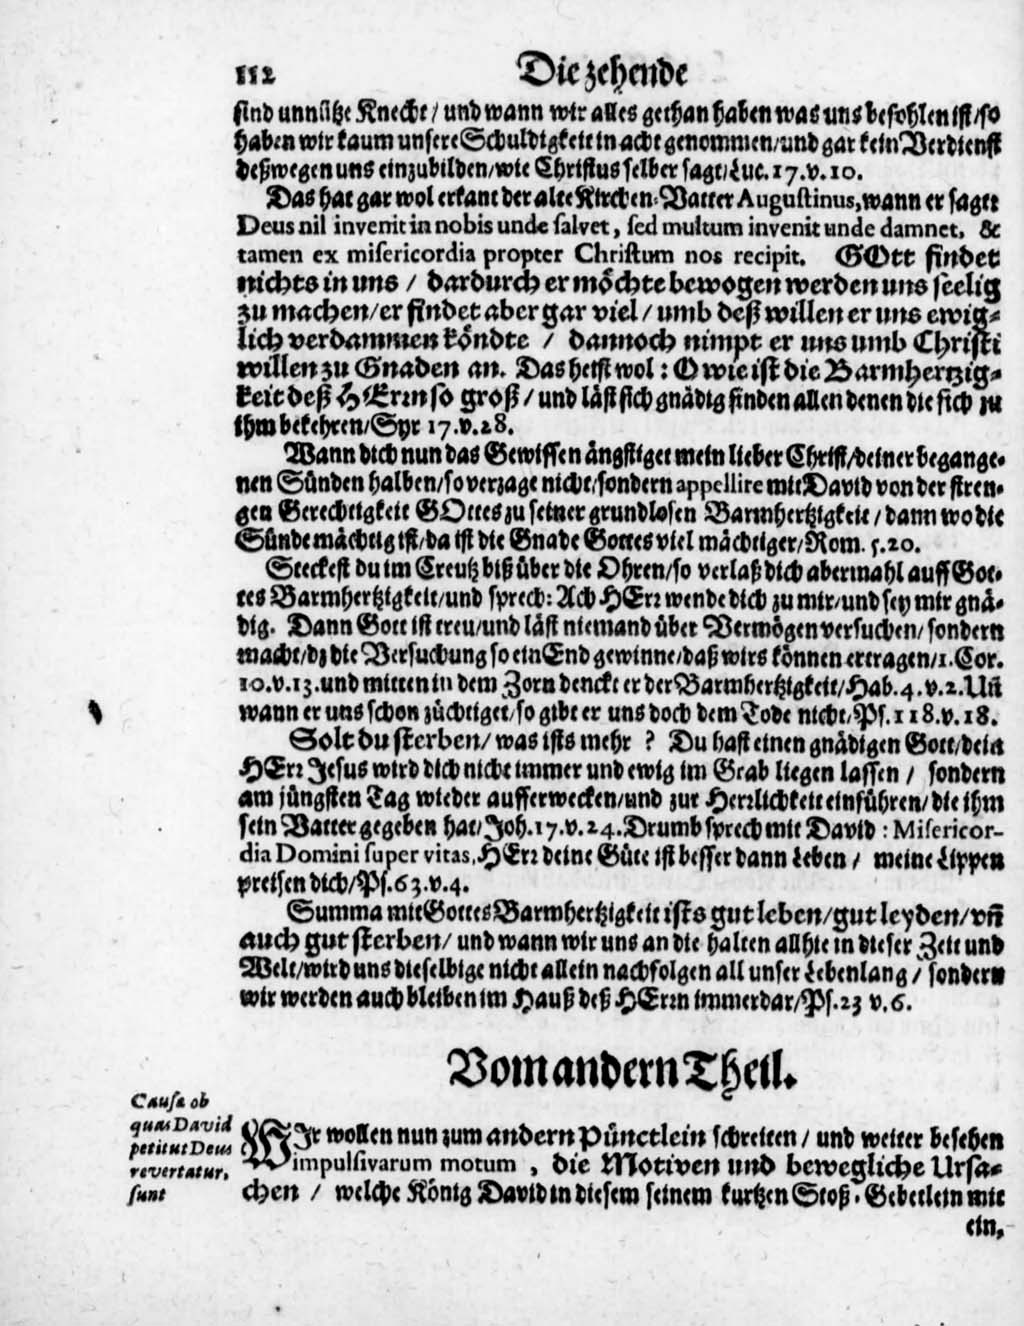 112 Die zehende
sind unnütze Knecht / und wann wir alles gethan haben was uns befohlen ist / so
haben wir kaum unsere Schuldigkeit in acht genommen / und gar kein Verdienst
deßwegen uns einzubilden / wie Christus selber sagt / Luc. 17. v. 10.
Das hat gar wol erkant der alte Kirchen-Vatter Augustinus, wann er saget
Deus nil invenit in nobis unde salvet, sed multum invenit unde damnet, &
tamen ex misericordia propter Christum nos recipit. GOtt findet
nichts in uns / dardurch er möchte bewogen werden uns seelig
zu machen / er findet aber gar viel / umb deß willen er uns ewig-
lich verdammen köndte / dannoch nimpt er uns umb Christi
willen zu Gnaden an. Das heist wol: O wie ist die Barmhertzig-
keit deß HErrn so groß / und läst sich gnädig finden allen denen die sich zu
ihm bekehren / Syr 17. v. 28.
Wann dich nun das Gewissen ängstiget mein lieber Christ / deiner begange-
nen Sünden halben / so verzage nicht / sondern appellire mit David von der stren-
gen Gerechtigkeit GOttes zu seiner grundlosen Barmhertzigkeit / dann wo die
Sünde mächtig ist / da ist die Gnade Gottes viel mächtiger / Rom. 5. 20.
Steckest du im Creutz biß über die Ohren / so verlaß dich abermahl auff Got-
tes Barmhertzigkeit / und sprech: Ach HErr wende dich zu mir / und sey mir gnä-
dig. Dann Gott ist treu / und läst niemand über Vermögen versuchen / sondern
macht / dz die Versuchung so ein End gewinne / daß wirs können ertragen / 1. Cor.
10. v. 13. und mitten in dem Zorn dencket er der Barmhertzigkeit / Hab. 4. v. 2. Uñ
wann er uns schon züchtiget / so gibt er uns doch dem Tode nicht / Ps. 118. v. 18.
Solt du sterben / was ists mehr ? Du hast einen gnädigen Gott / dein
HErr Jesus wird dich nicht immer und ewig im Grab liegen lassen / sondern
am jüngsten Tag wieder aufferwecken / und zur Herrlichkeit einführen / die ihm
sein Vatter gegeben hat / Joh. 17. v. 24. Drumb sprech mit David : Misericor-
dia Domini super vitas, HErr deine Güte ist besser dann Leben / meine Lippen
preisen dich / Ps. 63. v. 4.
Summa mit Gottes Barmhertzigkeit ists gut leben / gut leyden / vñ
auch gut sterben / und wann wir uns an die halten allhie in dieser Zeit und
Welt / wird uns dieselbige nicht allein nachfolgen all unser Lebenlang / sondern
wir werden auch bleiben im Hauß deß HErrn immerdar / Ps. 23 v. 6.
Vom andern Theil.
Causæ ob
quas David
petit ut Deus
revertatur,
sunt
WIr wollen nun zum andern Pünctlein schreiten / und weiter besehen
impulsivarum motum , die Motiven und bewegliche Ursa-
chen / welche König David in diesem seinem kurtzen Stoß-Gebetlein mit
ein,